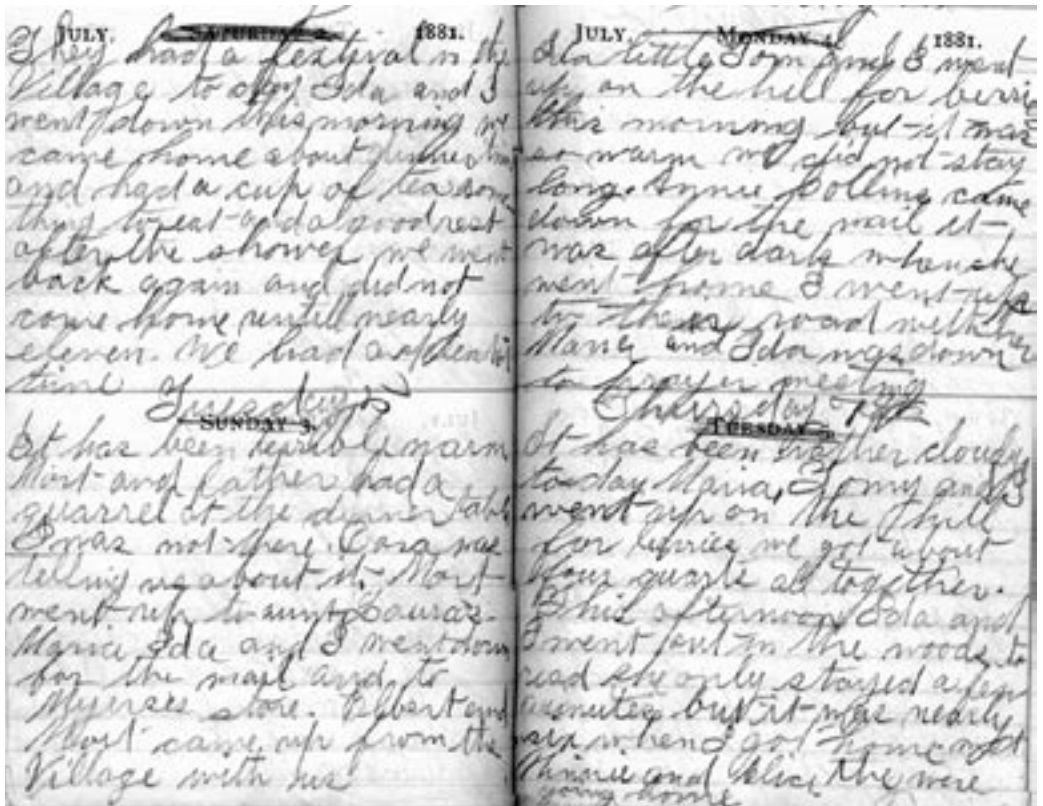 JULY. SATURDAY 2. 1881.
They had a festival in the
Village to day Ida and I
went down this morning we
came home about dinner time
and had a cup of tea some
thing to eat and a good rest
after the shower we went
back again and did not
come home until nearly
eleven. We had a splendid
time
Tuesday 5
SUNDAY 3.
It has been terrible warm
Mort and father had a
quarrel at the dinner table
I was not there. Cora was
telling me about it. Mort
went up to aunt Lauras.
Maria Ida and I went down
for the mail and to
Myerses store. Elbert and
Mort came up from the
Village with us
JULY. MONDAY 4. 1881.
Ida little Tom and I went
up on the hill for berries
this morning but it was
so warm we did not stay
long. Annie Collins came
down for the mail it
was after dark when she
went home I went up
to the road with her
Maria and Ida was down
to Prayer meeting
Thursday 7
TUESDAY 5.
It has been rather cloudy
to day Maria, Tomy and I
went up on the hill
for berries we got about
four quarts all together.
This afternoon Ida and
I went out in the woods to
read she only stayed a few
minutes but it was nearly
six when I got home met
Minnie and Alice the were
going home